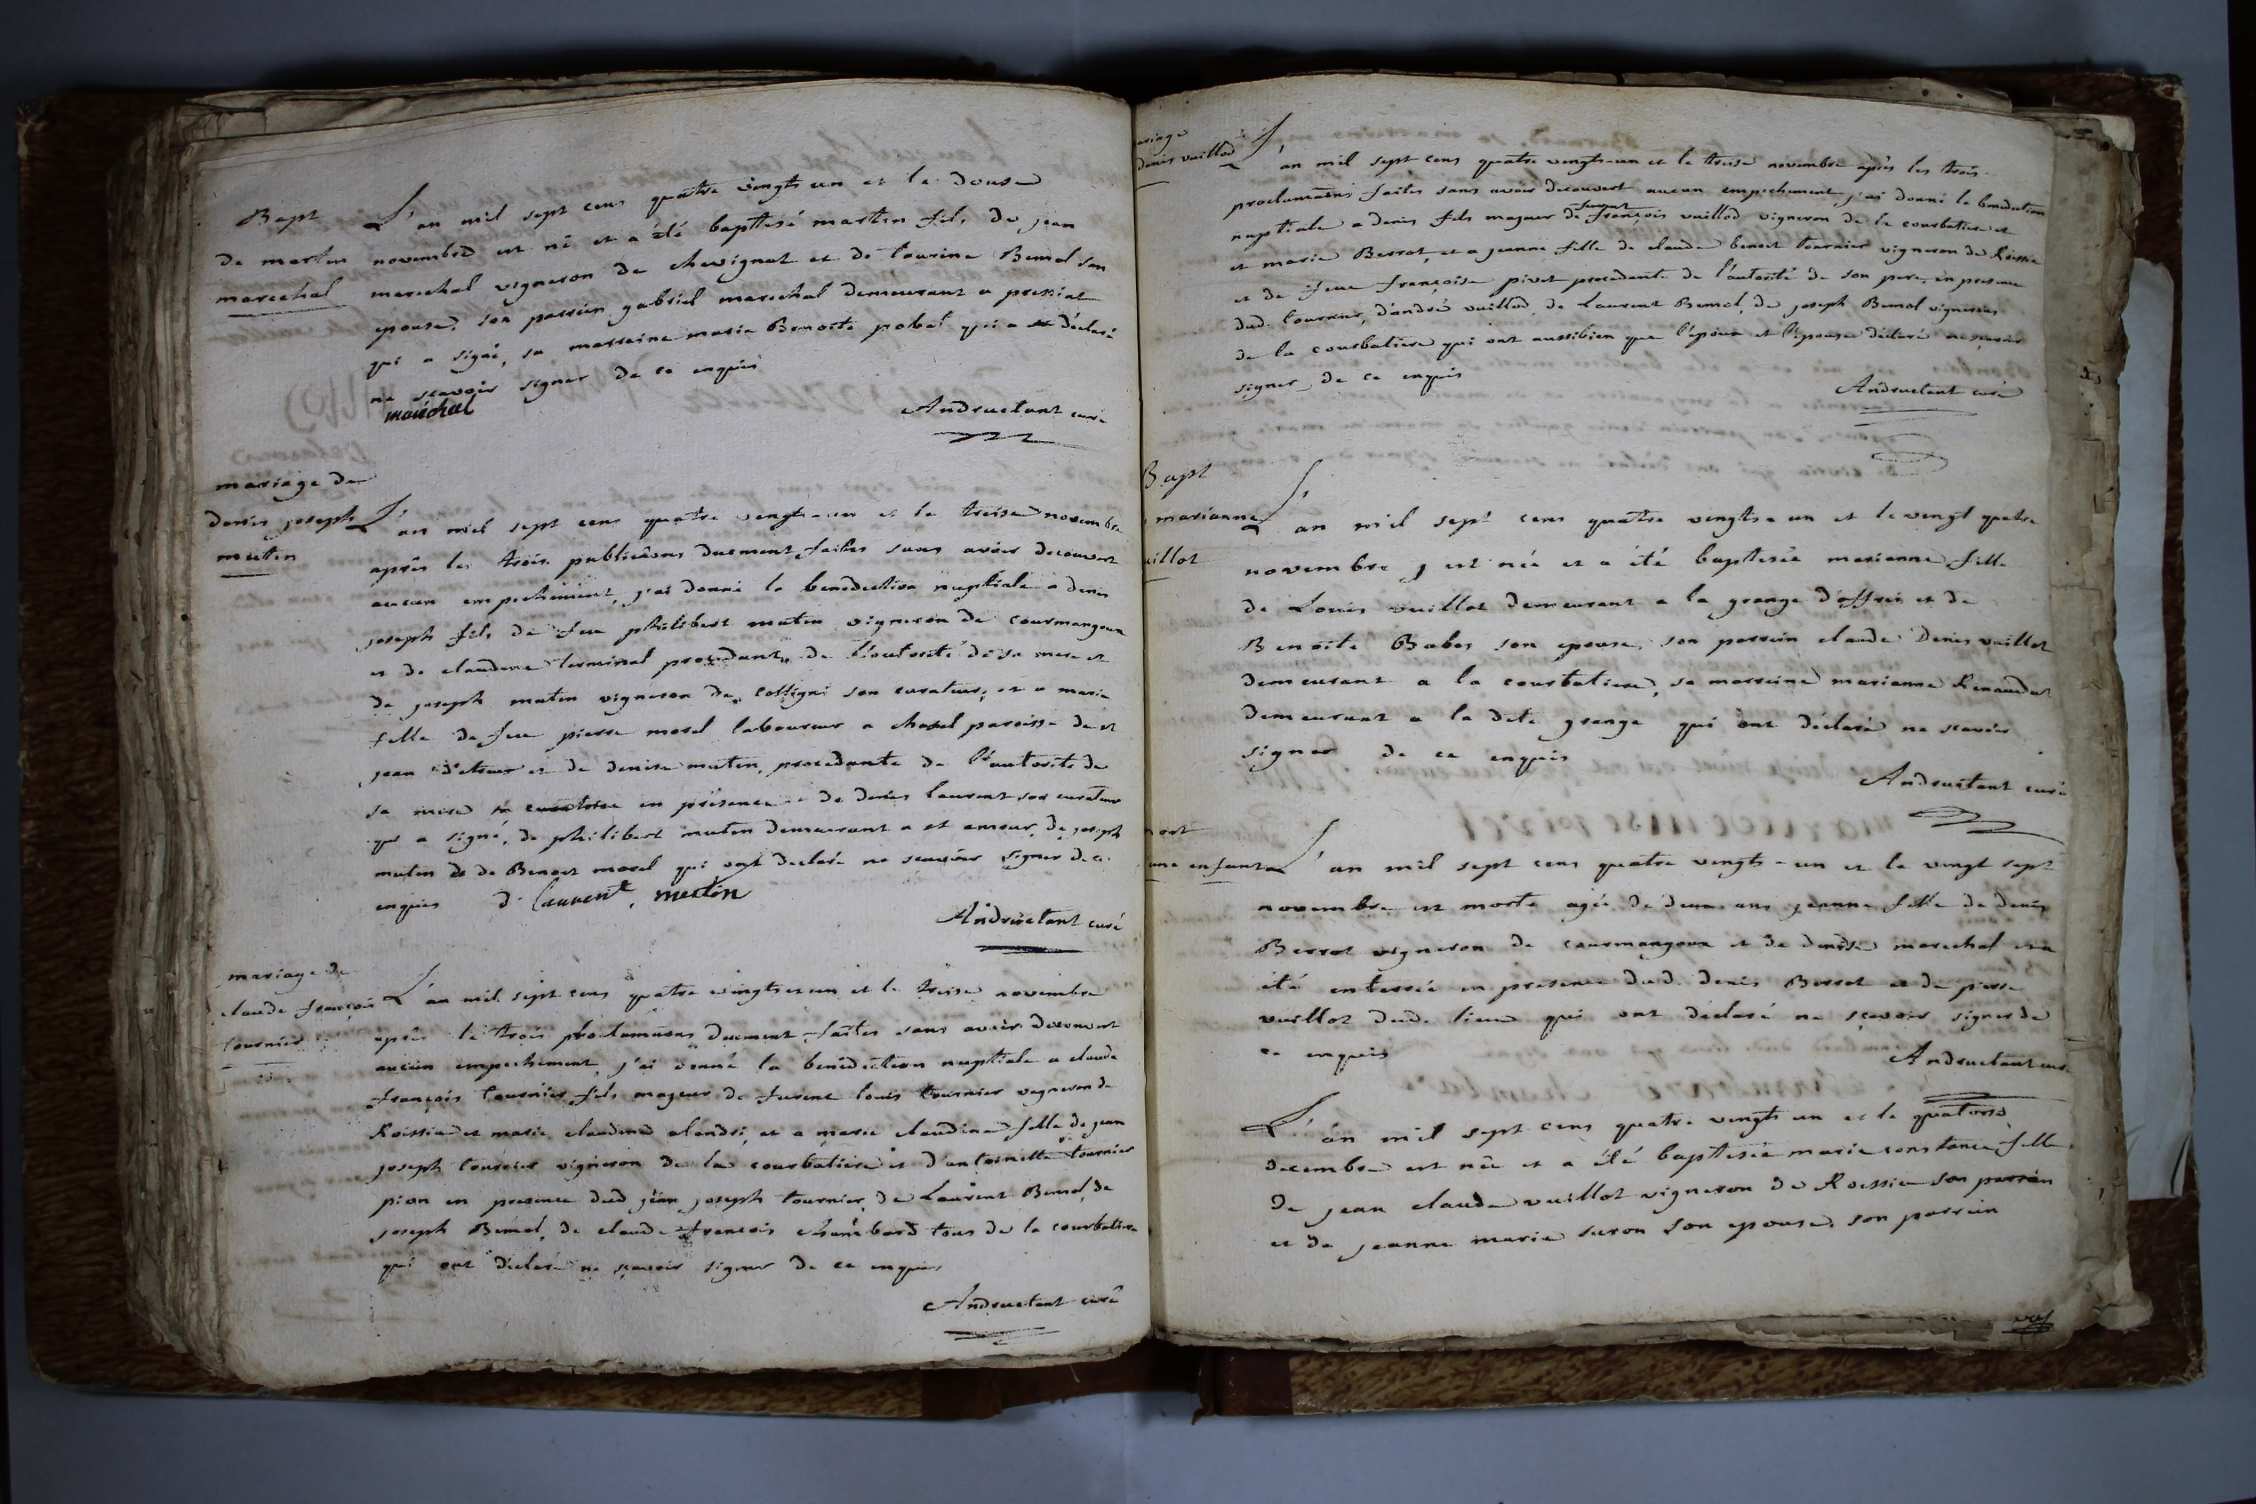 Bapt
de martin
marechal
L'an mil sept cens quatre vingts un et le douse
novembre est né et a été baptisé martin fils de jean
marechal vigneron de chevignat et de laurine Bemol son
epouse, son parrein gabriel marechal demeurant a pressiat
qui a signé, sa marreine marie Benoite pobel qui a déclaré
ne scavoir signer de ce enquis
maréchal
Andruetant curé
mariage de
denis joseph
mutin
L'an mil sept cens quatre vingts un et le treise novembre
après les trois publicaons duement faites sans avoir decouvert
aucun empechement, j'ai donné la benediction nuptiale a denis
joseph fils de feu philibert mutin vigneron de courmangoux
et de claudine terminal procedant de l'autorité de sa mere et
de joseph mutin vigneron de colligni son curateur, et a marie
fille de feu pierre morel laboureur a chasel paroisse de st
jean d'etreux et de denise mutin, procedante de l'autorité de
sa mere en présence de denis laurent son curateur
qui a signé, de philibert mutin demeurant a st amour, de joseph
mutin de Benoit morel qui ont declaré ne scavoir signer de ce
enquis d. laurent, mutin
Andruetant curé
mariage de
claude françois
tournier
L'an mil sept cens quatre vingts et un et le treise novembre
après les trois proclamaons duement faites sans avoir decouvert
aucun empechement j'ai donné la bénédiction nuptiale a claude
françois tournier fils majeur de furent louis tournier vigneron de
Roissiat et marie claudine alandri, et a marie claudine fille de jean
joseph tournier vigneron de la courbatiere et d'antoinette tournier
pion en presence dud jean joseph tournier, de Laurent Bemol, de
joseph Bemol, de claude françois chambard tous de la courbatiere
qui ont déclaré ne scavoir signer de ce enquis
Andruetant curé
mariage
denis vuillod
L'an mil sept cens quatre vingts un et le treise novembre après les trois
proclamaons faites sans avoir decouvert aucun empechement, j'ai donné la benediction
nuptiale a denis fils majeur de furent françois vuillod vigneron de la courbatiere et
et marie Berrot, et a jeanne fille de claude benoit tournier vigneron de Roissia
et de feue françoise pivet procedante de l'autorité de son pere, en presence
dud. tournier, d'andré vuillod, de Laurent Bemol, de joseph Bemol vignerons
de la courbatiere qui ont aussibien que l'epoux et l'epouse déclaré ne scavoir
signer, de ce enquis
Andruetant curé
Bapt
marianne
uillot
L'an mil sept cens quatre vingts un et le vingt quatre
novembre, est née et a été baptisée marianne fille
de Louis vuillot demeurant a la grange d'affrix et de
Benoite Babos son epouse, son parrein claude Denis vuillot
demeurant a la courbatiere, sa marreine marianne Renaudat
demeurant a la dite grange qui ont déclaré ne scavoir
signer de ce enquis
Andruetant curé
mort
une enfant
L'an mil sept cens quatre vingts un et le vingt sept
novembre est morte agée de deux ans jeanne fille de denis
Berrot vigneron de courmangoux et de denise marechal et a
été enterrée en presence dud. denis Berrot et de pierre
vuillot dud. lieu qui ont déclaré ne scavoir signer de
ce enquis
Andruetant curé
L'an mil sept cens quatre vingts un et le quatorse
decembre est née et a été baptisée marie constance fille
de jean claude vuillot vigneron de Roissia son parrein
et de jeanne marie suron son epouse, son parrein